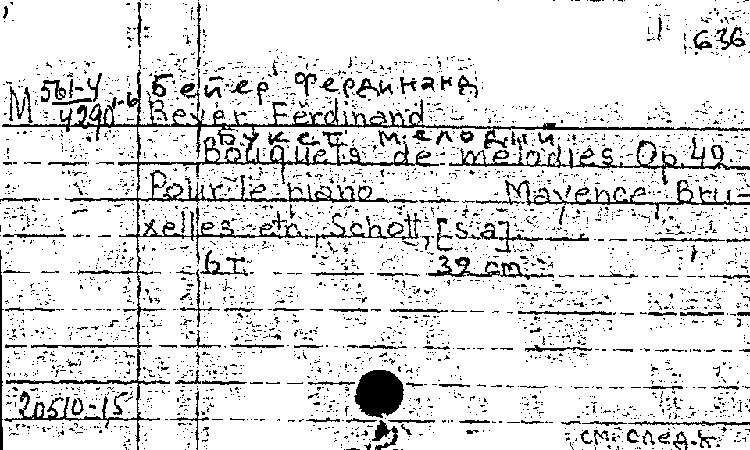 636
М 561-4 Бейер Фердинанд
4290 1-6 Beyer Ferdinand
Букет мелодий.
Bouquets de mélodies. Op. 42.
Pour le piano. Mayence, Bru=
xelles etc, Schott, [s.a.]
6 т. 32 cm.
20510-15
см. след. к.